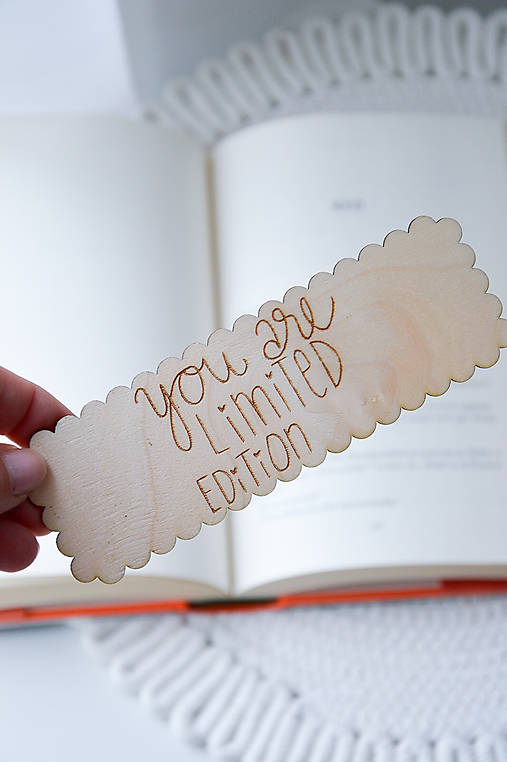 you are
LiMiTED
EDiTiON